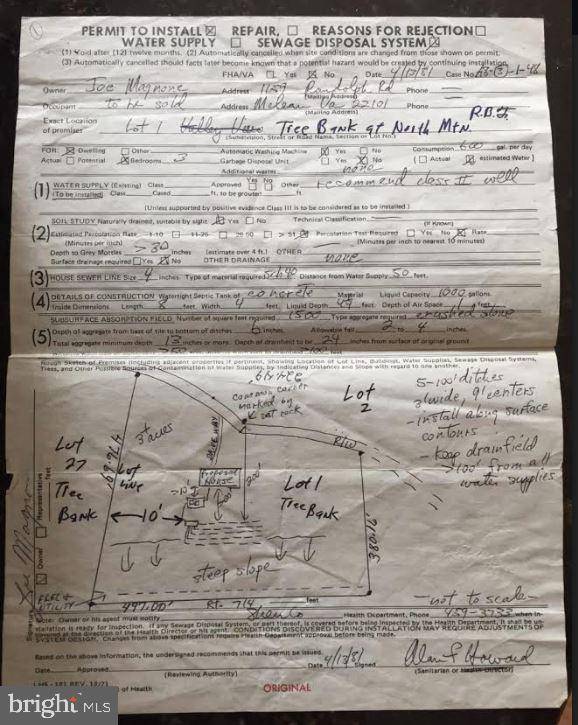 PERMIT TO INSTALL ☒ REPAIR, ☐ REASONS FOR REJECTION ☐
WATER SUPPLY ☐ SEWAGE DISPOSAL SYSTEM ☒
(1) Void after (12) twelve months. (2) Automatically cancelled when site conditions are changed from those shown on permit.
(3) Automatically cancelled should facts later become known that a potential hazard would be created by continuing installation.
FHA/VA ☐ Yes ☒ No Date 4/13/81 Case No.
Owner Joe Magnone Address 1159 Randolph Rd Phone
(Mailing Address)
Occupant to be sold Address Mclean Va 22101 Phone
(Mailing Address)
R.B.2.
Exact Location of premises Lot 1 Tree Bank at North Mtn.
(Subdivision, Street or Road Name, Section or Lot No.)
FOR: ☒ Dwelling ☐ Other Automatic Washing Machine ☒ Yes ☐ No Consumption 600 gal. per day
☐ Actual ☐ Potential ☒ Bedrooms 3 Garbage Disposal Unit ☐ Yes ☒ No (☐ Actual ☒ estimated Water)
Additional wastes none
(1) WATER SUPPLY (Existing) Class Approved ☐ Yes ☐ No Other recommend class II well
(To be installed) Class Cased ft. to be grouted ft.
(Unless supported by positive evidence Class III is to be considered as to be installed.)
SOIL STUDY Naturally drained, suitable by sight ☒ Yes ☐ No Technical Classification (If Known)
(2) Estimated Percolation Rate 1-10 ☐ 11-25 ☐ 26-50 ☐ > 51 ☒ Percolation Test Required ☐ Yes ☒ No Rate
(Minutes per inch) (Minutes per inch to nearest 10 minutes)
Depth to Grey Mottles > 30 inches (estimate over 4 ft.) OTHER
Surface drainage required ☐ Yes ☒ No OTHER DRAINAGE none
(3) HOUSE SEWER LINE Size 4 inches. Type of material required sch 40 Distance from Water Supply 50 feet.
(4) DETAILS OF CONSTRUCTION Watertight Septic Tank of concrete Material Liquid Capacity 1000 gallons
Inside Dimensions Length 8 feet, Width 4 feet, Liquid Depth 4 ft feet. Depth of Air Space feet
SUBSURFACE ABSORPTION FIELD. Number of square feet required 1500 Type aggregate required crushed stone
(5) Depth of aggregate from base of tile to bottom of ditches 6 inches. Allowable fall 2 to 4 inches.
Total aggregate minimum depth 13 inches. Depth of drainfield to be 24 inches from surface of original ground
Rough Sketch of Premises (including adjacent properties if pertinent, showing Location of Lot Line, Buildings, Water Supplies, Sewage Disposal Systems,
Trees, and Other Possible Sources of Contamination of Water Supplies, by Indicating Distances and Slope with regard to one another.
common corner
marked by
Lot 2
3+ acres
DRIVEWAY
R/W
Lot 27
Tree Bank
Lot Line
Proposed House
200'
Lot 1
Tree Bank
10'
steep slope
380.19'
497.00' Rt. 714 feet
5-100' ditches
3' wide, 9' centers
- install along surface
contours
- Keep drainfield
>100' from all
water supplies
- not to scale -
☐ Representative
☒ Owner
Joe Magnone
Note: Owner or his agent must notify Health Department, Phone 459-3733 when in-
stallation is ready for inspection. If any Sewage Disposal System, or part thereof, is covered before being inspected by the Health Department, it shall be un-
covered at the direction of the Health Director or his agent. CONDITIONS DISCOVERED DURING INSTALLATION MAY REQUIRE ADJUSTMENTS OF
SYSTEM DESIGN. Changes from above specifications require Health Department approval before being made.
Based on the above information, the undersigned recommends that this permit be issued.
Date Approved Date 4/13/81 Signed Alan L Howard
(Reviewing Authority) (Sanitarian or Health Director)
of Health
ORIGINAL
bright MLS